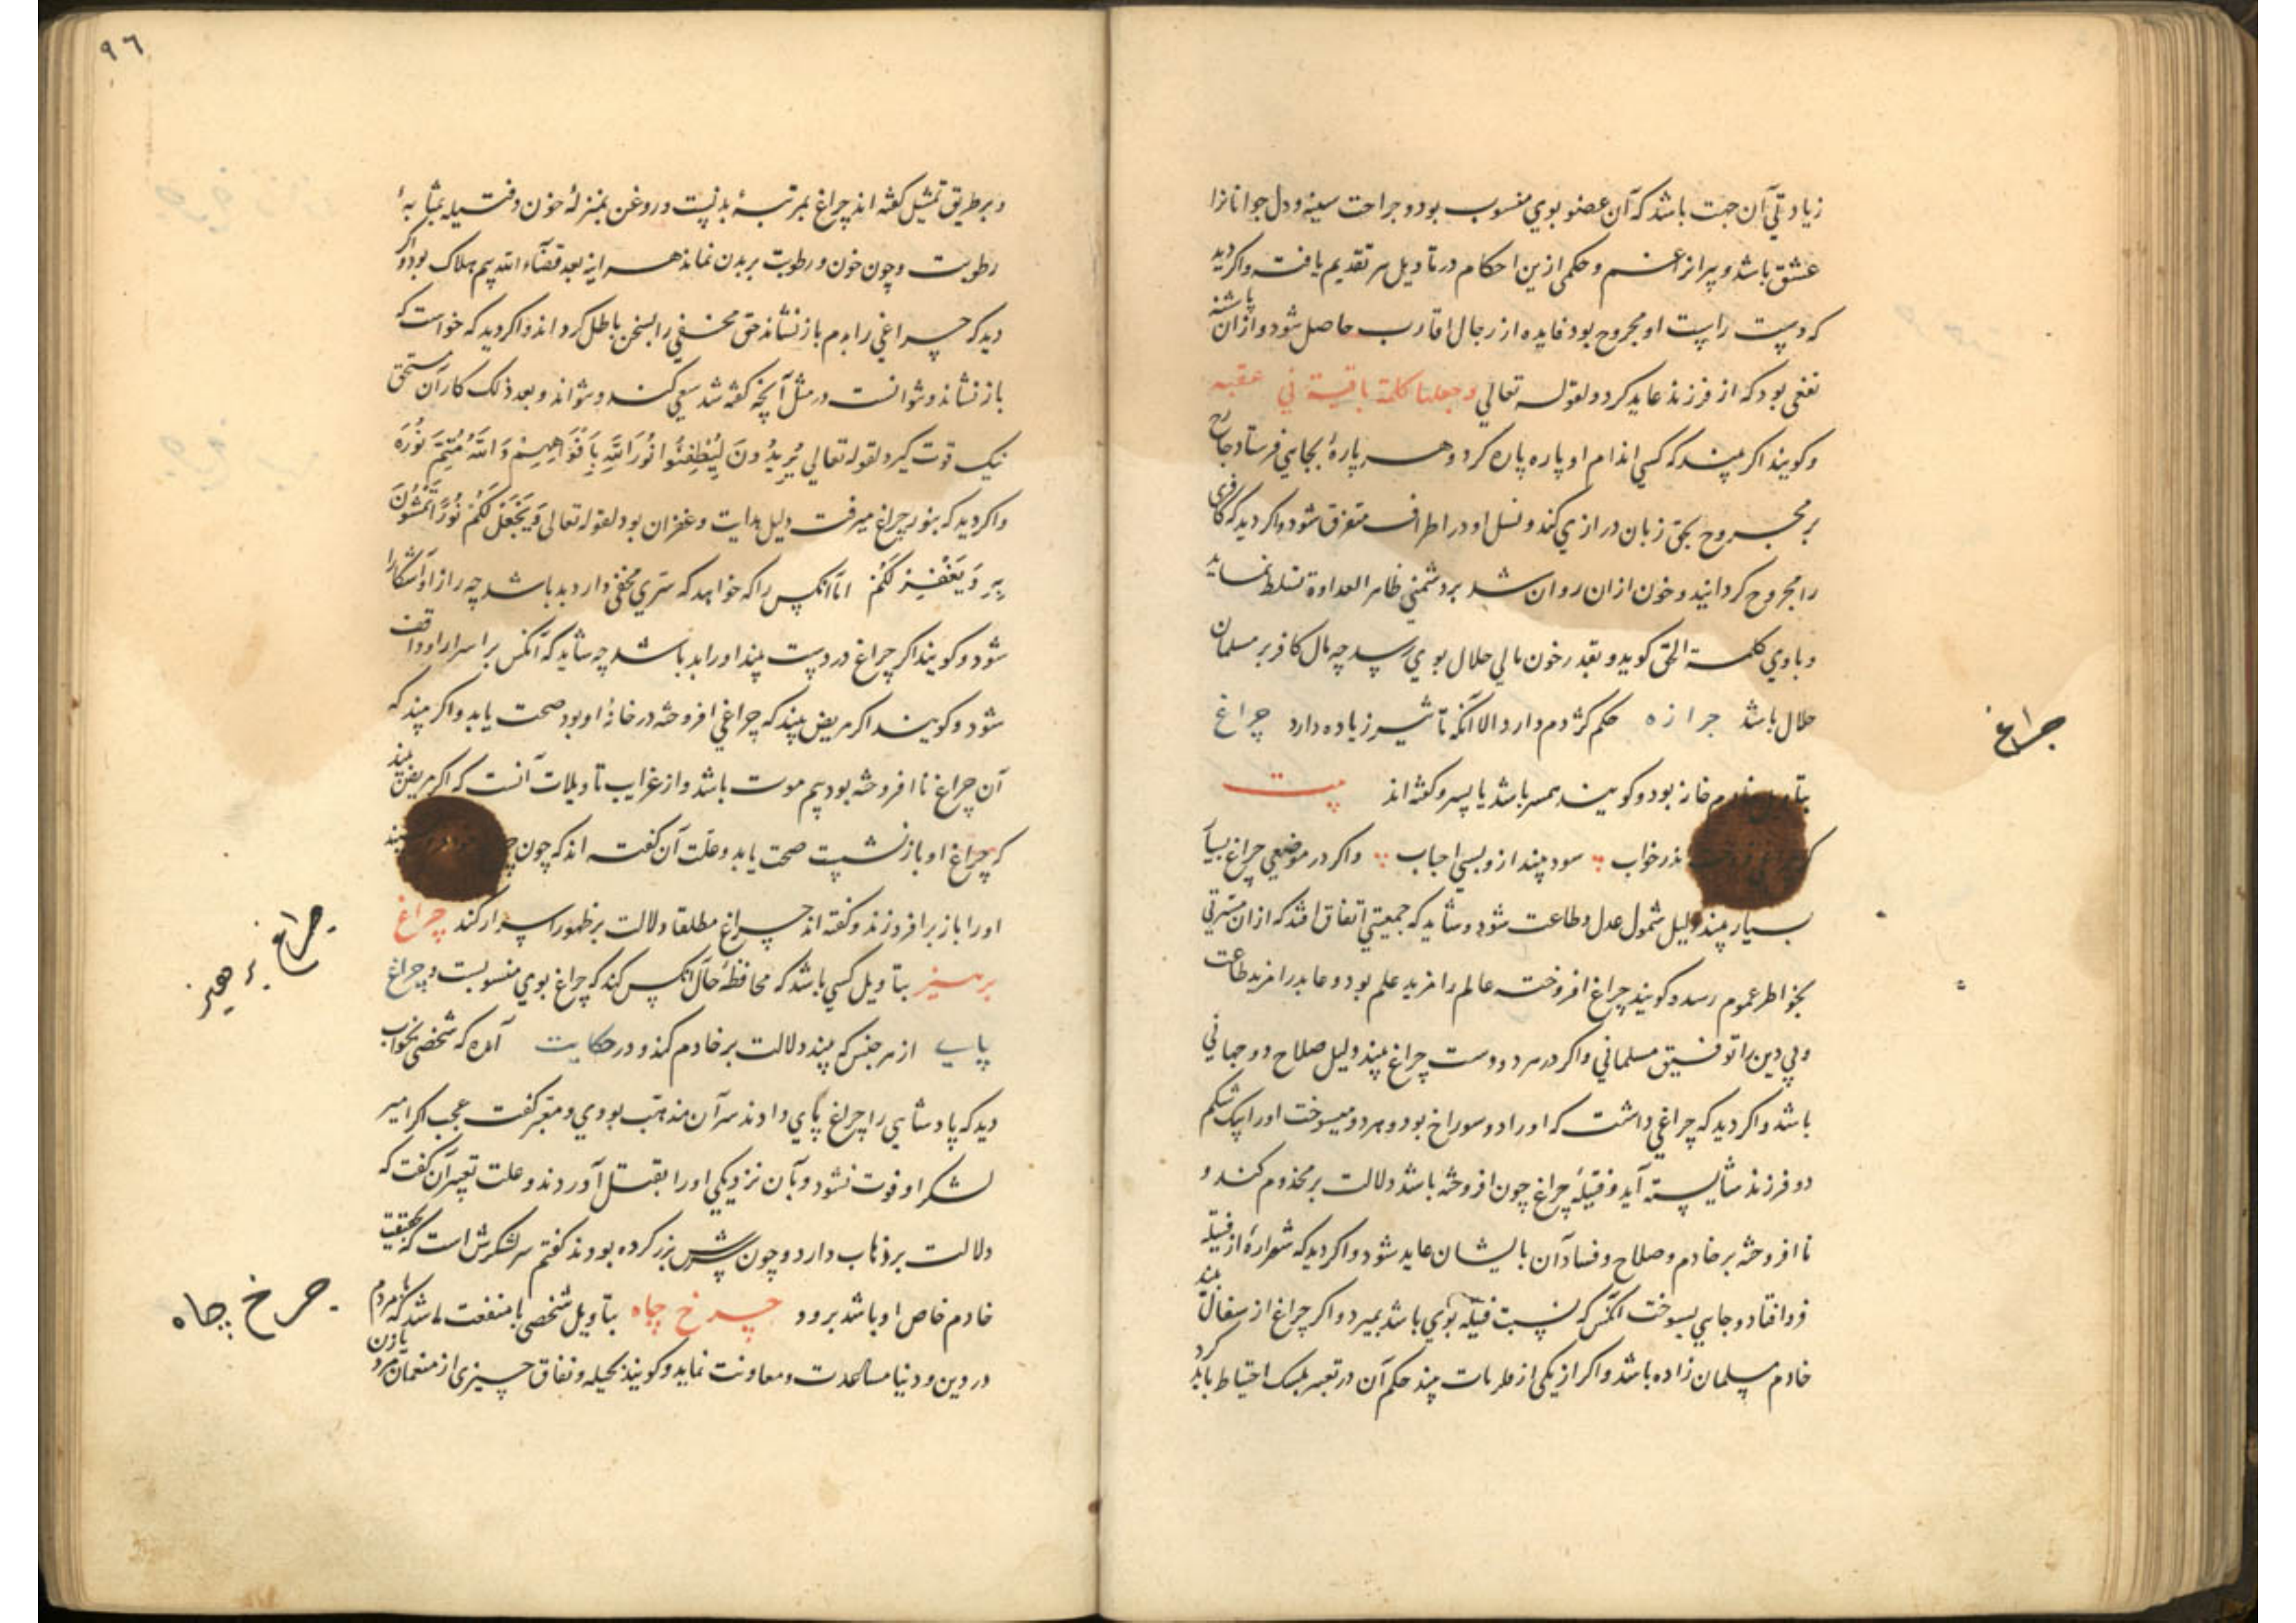 زیادتی آن جهت باشد که آن عضو بوی منسوب بود و جراحت سینه و دل جوانانرا
عشق باشد و پیرانرا غم و حکمی ازین احکام در تأویل سر تقدیم یافت و اکر دید
که دست راست او مجروح بود فایده از رجال اقارب حاصل شود و از آن پاشنه
نفعی بود که از فرزند عاید کردد لقوله تعالی وجعلها کلمة باقیة فی عقبه
و کویند اکر بیند که کسی اندام او پاره پاره کرد و هر پارهٔ بجایی فرستاد جارح
بر مجروح بحق زبان درازی کند و نسل او در اطراف متفرق شود و اکر دید که کافری
را مجروح کردانید و خون ازان روان شد بر دشمنی ظاهر العداوة تسلط نماید
و باوی کلمة الحق کوید و بقدر خون مالی حلال بوی رسد چه مال کافر بر مسلمان
حلال باشد جرازه حکم کژدم دارد الا آنکه تأثیر زیاده دارد چراغ
چراغ
بتأویل خادم خانه بود و کویند همسر باشد یا پسر و کفته اند بیت
که بذر خواب سود بیند ازو بسی احباب و اکر در موضعی چراغ بسیا
بسیار بیند دلیل شمول عدل و طاعت شود و شاید که جمعیتی اتفاق افتد که ازان مسرتی
بخواطر عموم رسد و کویند چراغ افروخته عالم را مزید علم بود و عابد را مزید طاعت
و بی دین را توفیق مسلمانی و اکر در هر دو دست چراغ بیند دلیل صلاح دو جهانی
باشد و اکر دید که چراغی داشت که او را دو سوراخ بود و هر دو میسوخت او را بیک شکم
دو فرزند شایسته آید و فتیلهٔ چراغ چون افروخته باشد دلالت بر مخدوم کند و
نا افروخته بر خادم و صلاح و فساد آن بایشان عاید شود و اکر دید که شرارهٔ از فتیله
فرو افتاد و جایی بسوخت آنکس که نسبت فتیله بوی باشد بمیرد و اکر چراغ از سفال بیند
خادم مسلمان زاده باشد و اکر از یکی از فلزات بیند حکم آن در تعبیر بلیک احتیاط باید کرد
٩٦
و بر طریق تمثیل کفته اند چراغ بمرتبهٔ بدنست و روغن بمنزلهٔ خون و فتیله بمثابهٔ
رطوبت و چون خون و رطوبت بر بدن نماند هر اینه بعد قضاء الله بیم هلاک بود و اکر
دید که چراغی را بدم باز نشاند حق مخفی را بسخن باطل کرداند و اکر دید که خواست که
باز نشاند و نتوانست در مثل آنچه کفته شد سعی کند و نتواند و بعد ذلک کار آن مستحق
نیک قوت کیرد لقوله تعالی یُرِیدُونَ لِیُطْفِئُوا نُورَ اللَّهِ بِأَفْوَاهِهِمْ وَاللَّهُ مُتِمُّ نُورِهِ
و اکر دید که بنور چراغ میرفت دلیل هدایت و غفران بود لقوله تعالی وَیَجْعَلْ لَکُمْ نُورًا تَمْشُونَ
بِهِ وَیَغْفِرْ لَکُمْ اما آنکس را که خواهد که سرّی مخفی دارد بد باشد چه راز او آشکارا
شود و کویند اکر چراغ در دست بیند او را بد باشد چه شاید که آنکس بر اسرار او واقف
شود و کویند اکر مریض بیند که چراغی افروخته در خانهٔ او بود صحت یابد و اکر بیند که
آن چراغ نا افروخته بود بیم موت باشد و از غرایب تأویلات آنست که اکر مریض بیند
که چراغ او باز نشست صحت یابد و علت آن کفته اند که چون
او را باز بر افروزند و کفته اند چراغ مطلقا دلالت بر ظهور اسرار کند چراغ
چراغ پرهیز
پرهیز بتأویل کسی باشد که محافظهٔ حال آنکس کند که چراغ بوی منسوبست و چراغ
پایه از هر جنس که بیند دلالت بر خادم کند و در حکایت آمده که شخصی بخواب
دید که پادشاهی را چراغ پای دادند سر آن مذهب بودی و معبر کفت عجب اکر امیر
لشکر او فوت نشود و بآن نزدیکی او را بقتل آوردند و علت تعبیر آن کفت که
دلالت بر ذهاب دارد و چون سرش بزر کرده بودند کفتم سر لشکرش است که بحقیقت
خادم خاص او باشد برود چرخ چاه بتأویل شخصی با منفعت باشد که با مردم
چرخ چاه
در دین و دنیا مساعدت و معاونت نماید و کویند بحیله و نفاق چیزی از منعمان